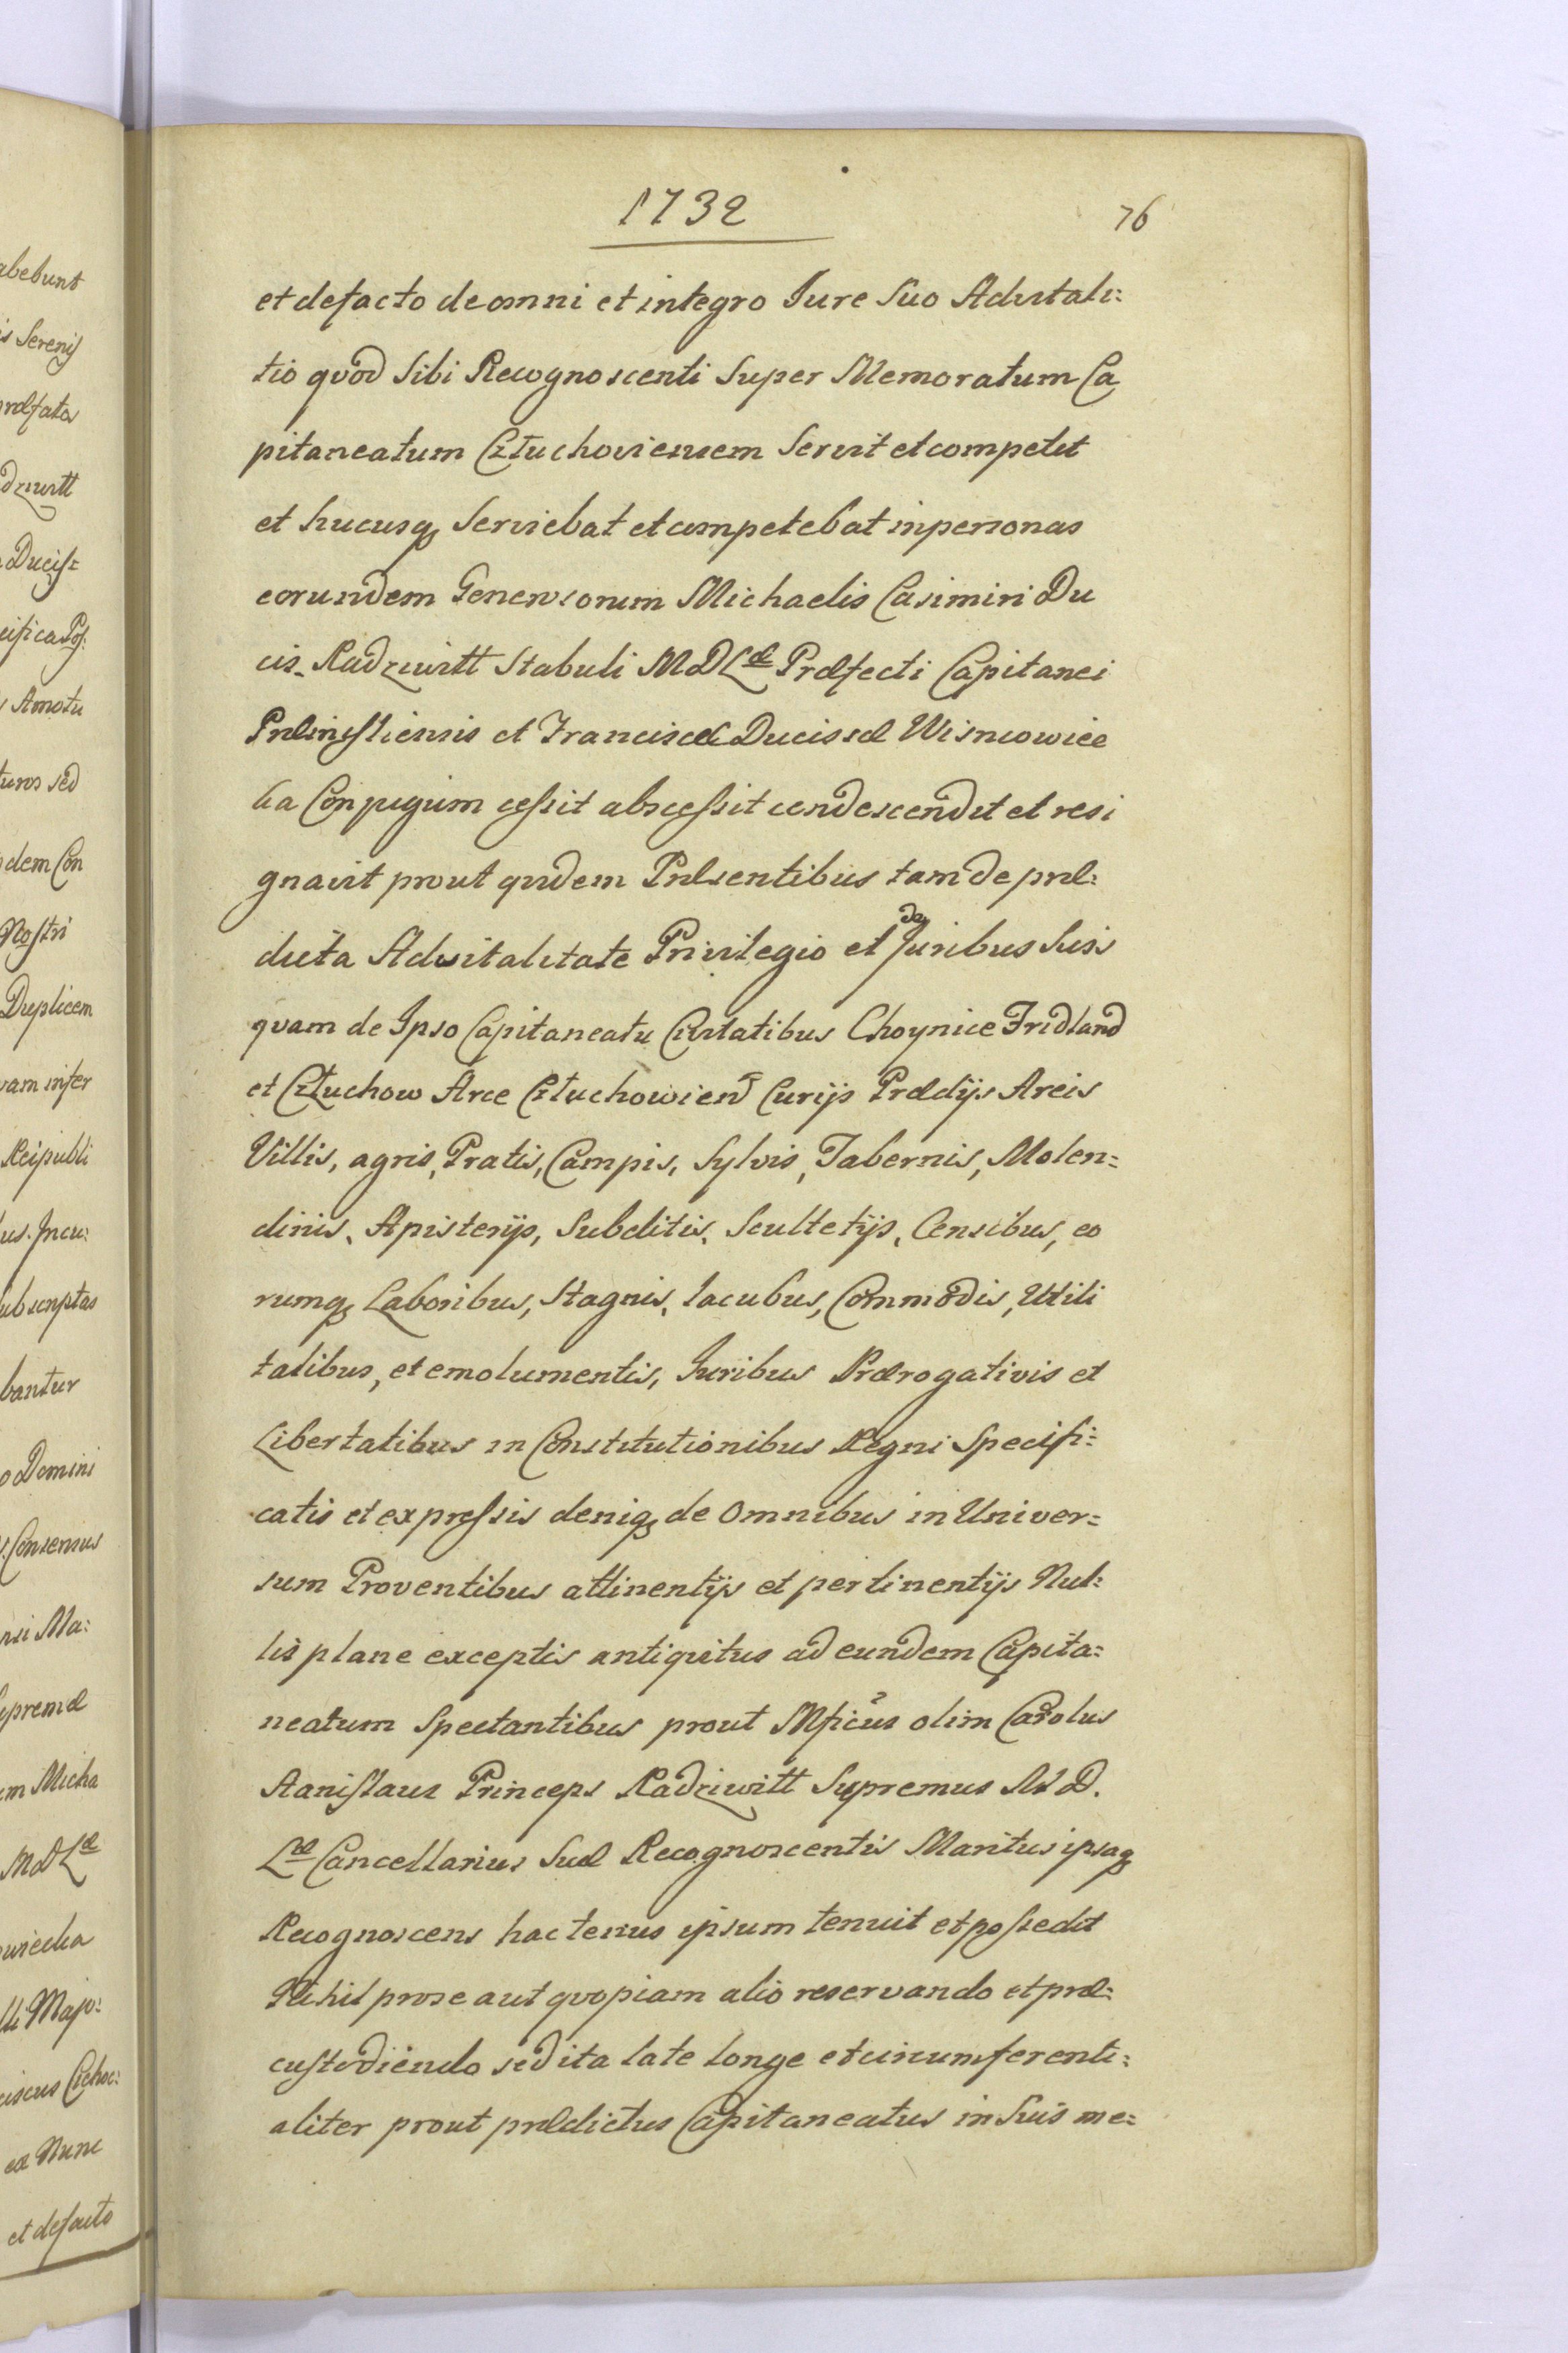 1732
76
et defacto de omni et integro Jure Suo Advitali:
tio quod Sibi Recognoscenti Super Memoratum Ca
pitaneatum Człuchoviensem Servit et competit
et hucusq Serviebat et competebat in personas
eorundem Generosorum Michaelis Casimiri Du
cis Radziwiłł Stabuli MDLæ Præfecti Capitanei
et Franciscæ Ducissæ Wisniowiec
ka Conjugum cessit abscessit condescendit et resi
gnavit prout quidem Præsentibus tam de præ:
dicta Advitalitate Privilegio et Juribus Suis
quam de Ipso Capitaneatu Civitatibus Choynice Fridland
et Człuchow Arce Człuchowien Curijs Prædijs Areis
Villis, agris, Pratis, Campis, Sylvis, Tabernis, Molen=
dinis, Apisterijs, Subditis, Scultetijs, Censibus, eo
rumq Laboribus, Stagnis, Lacubus, Commodis, Utili
tatibus, et emolumentis, Juribus Prærogativis et
Libertatibus in Constitutionibus Regni Specifi=
catis et expressis deniq de Omnibus in Univer=
sum Proventibus attinentijs et pertinentijs Nul:
lis plane exceptis antiquitus ad eundem Capita=
neatum Spectantibus prout Mficus olim Carolus
Stanislaus Princeps Radziwiłł Supremus M D.
Læ Cancellarius Suæ Recognoscentis Maritus ipsaq
Recognoscens hactenus ipsum tenuit et possedit
Nihil pro se aut quopiam alio reservando et præ:
custodiendo sed ita late longe et circumferenti:
aliter prout prædictus Capitaneatus in Suis me=
abebunt
is Sereniss
præfata
dziwiłł
Ducis=
cifica Pos:
Amotu
turos sed
dem Con
Nostri
Duplicem
vam infer
Reipubli
us. Incu:
ubscriptas
bantur
o Domini
Consensus
nsi Ma:
upremæ
m Micha
MDLæ
owiecka
lli Majo:
ciscus Cichoc:
ex Nunc
et defacto